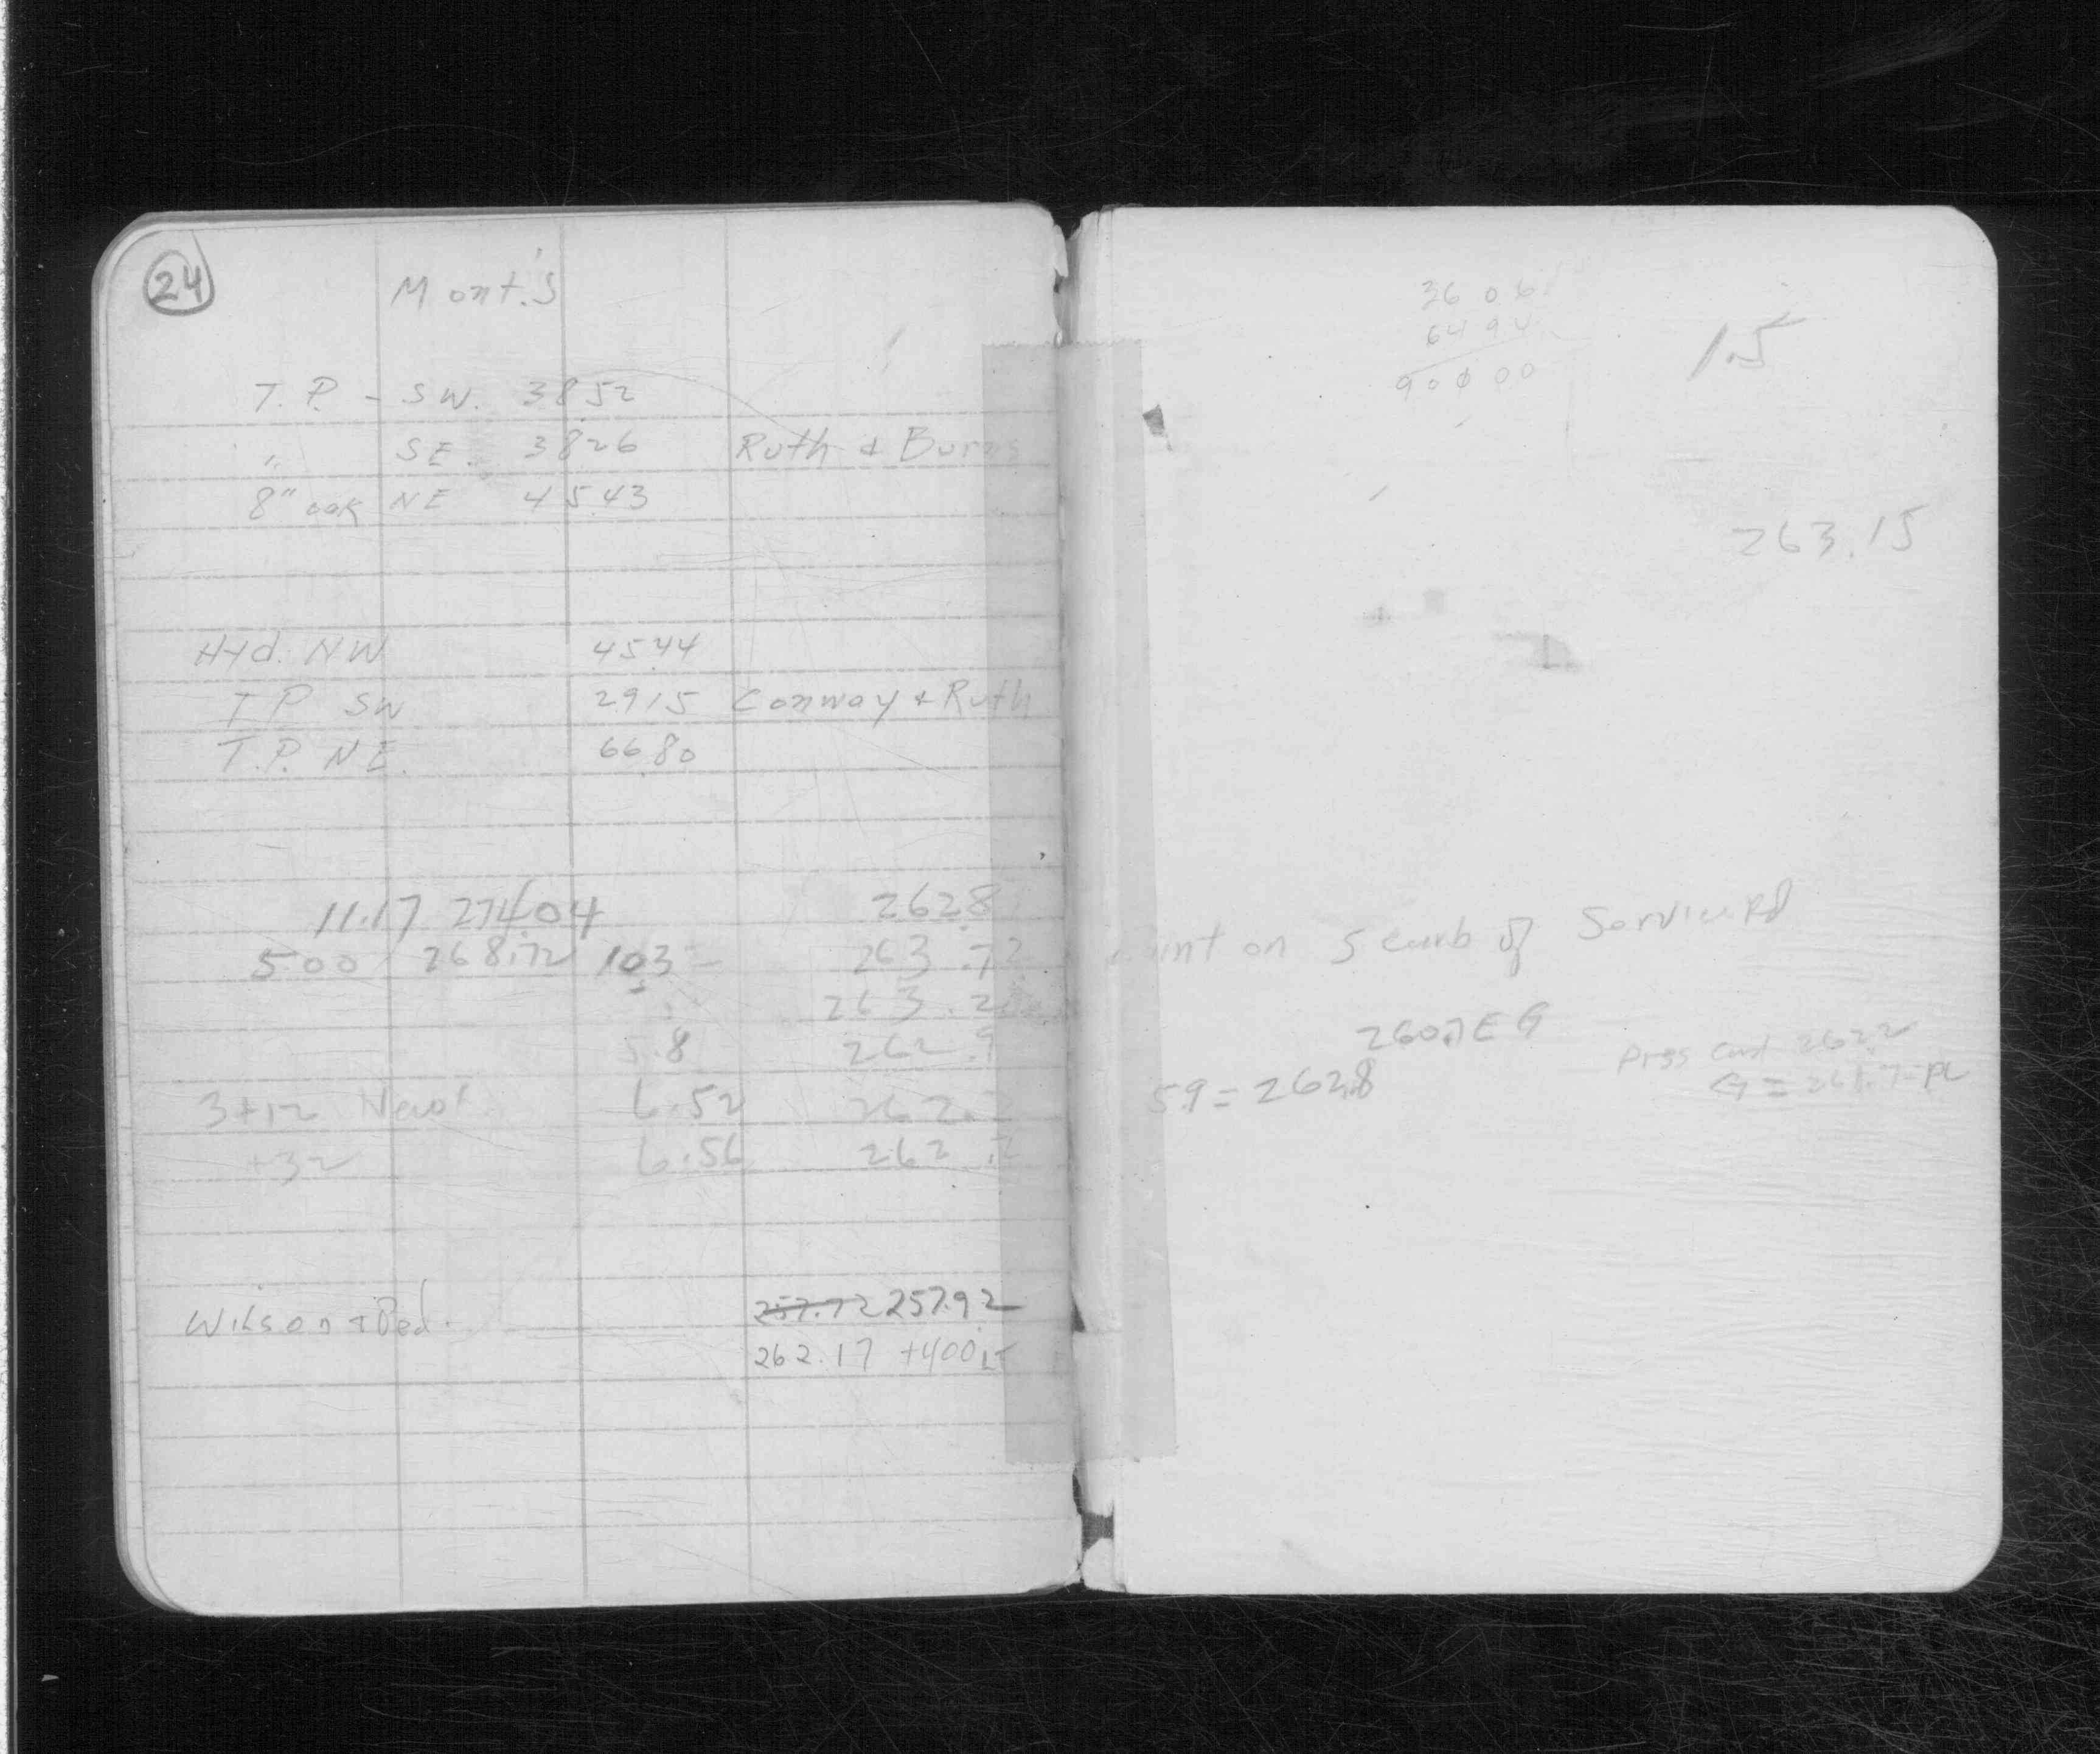 24
Mont.'s
T.P. - SW. 38.52
" SE. 38.26 Ruth & Burns
8" oak NE 45.43
Hyd. NW 45.44
T.P. SW 29.15 Conway & Ruth
T.P. N.E. 66.80
11.17 274.04 262.8
5.00 268.72 103 263.72
263.2
5.8 262.9
3+12 6.52 262.2
+32 6.56 262.2
Wilson & Ded. 257.72 257.92
262.17 +400
36 06
64 94
90 00 00
1.5
263.15
on S curb of Service Rd
260.7 E G
59 = 262.8
262.2
G =